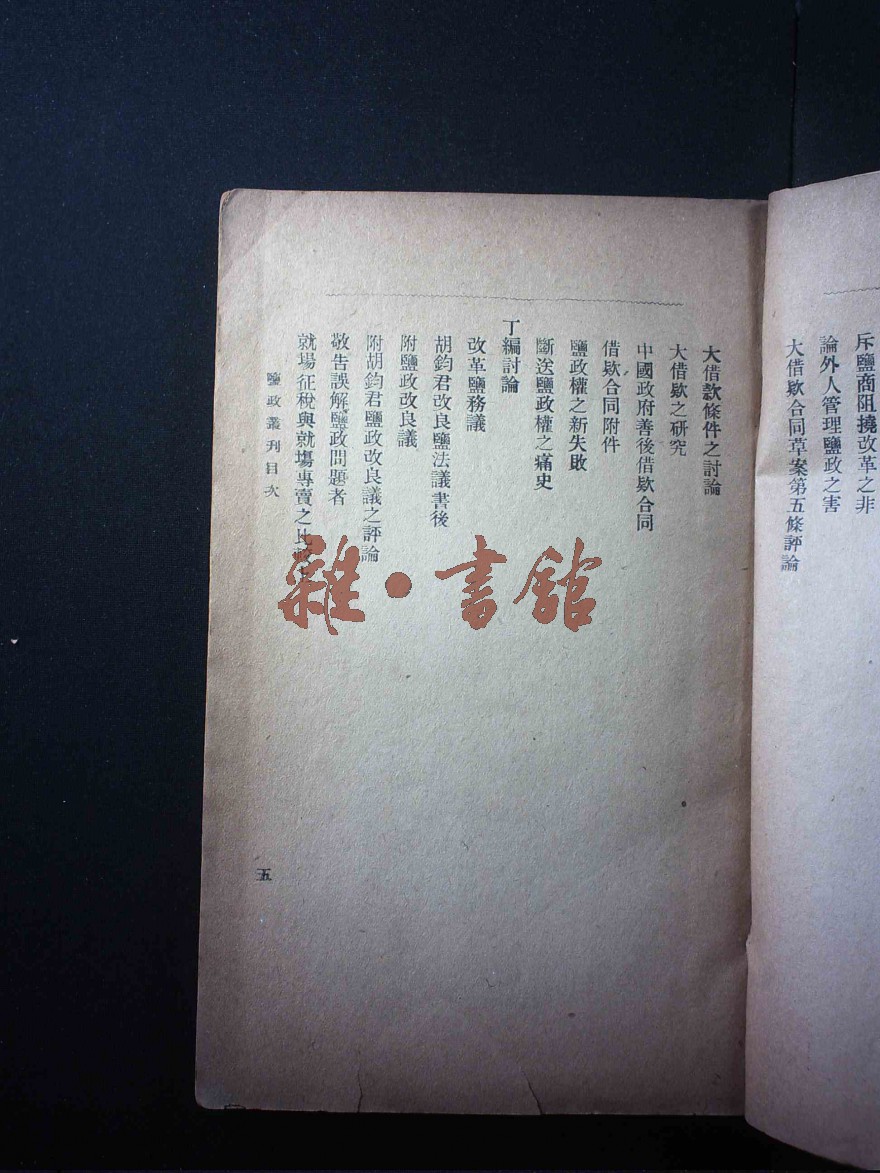 斥鹽商阻撓改革之非
論外人管理鹽政之害
大借欵合同草案第五條評論
大借款條件之討論
大借欵之研究
中國政府善後借欵合同
借欵合同附件
鹽政權之新失敗
斷送鹽政權之痛史
丁編討論
改革鹽務議
胡鈞君改良鹽法議書後
附鹽政改良議
附胡鈞君鹽政改良議之評論
敬告誤解鹽政問題者
就場征稅與就塲專賣之比較
鹽政叢刊目次
五
雜·書館